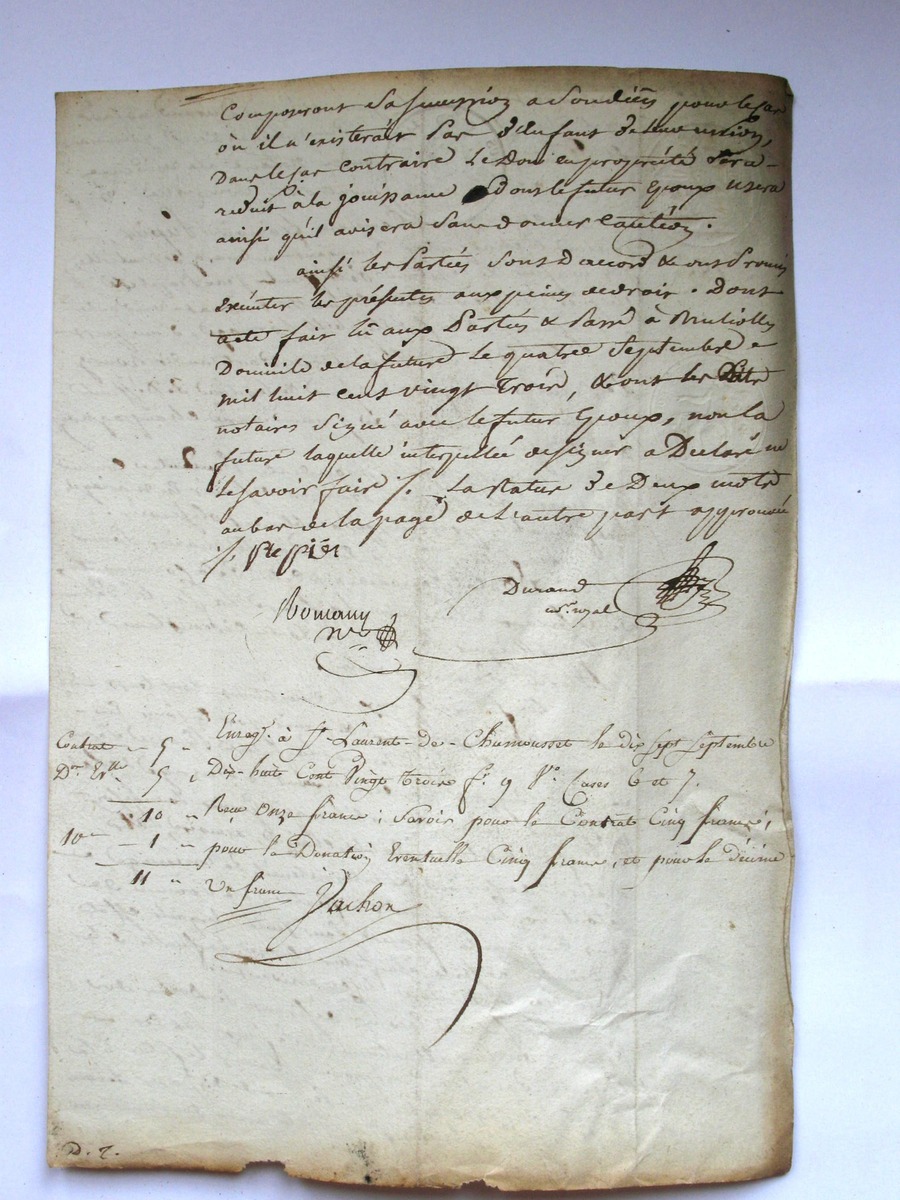 Composeront sa succession a son décès pour le cas
où il n'existerait pas d'enfant de leur union,
Dans le cas contraire le Don en propriété sera
reduit à la jouissance dont le futur Epoux usera
ainsi qu'il avisera sans donner Caution.
ainsi les Parties sont D'accord & ont Promis
exécuter les présentes aux peines de droit. Dont
acte fait lû aux Parties & Passé à
Domicile de la future Le quatre Septembre
mil huit cent vingt trois, & ont les Dits
notaires Signé avec le futur Epoux, non la
future laquelle interpellée de signer a Déclaré ne
le savoir faire /. La rature de Deux mots
au bas de la page de l'autre part approuvée
/.
Durand
nre. royal
Romany
nre
Enregé. à St. Laurent-de-Chamousset le dix sept Septembre
Dix-huit Cent Vingt trois fo. 9 Vo. Cases 6 et 7.
Reçu Onze francs; Savoir pour le Contrat Cinq francs;
pour la Donation Eventuelle Cinq francs, et pour le décime
Un franc Jachon
Contrat - 5 -
Don Evlle - 5 "
10 "
10e - 1 "
11 "
D. 7.